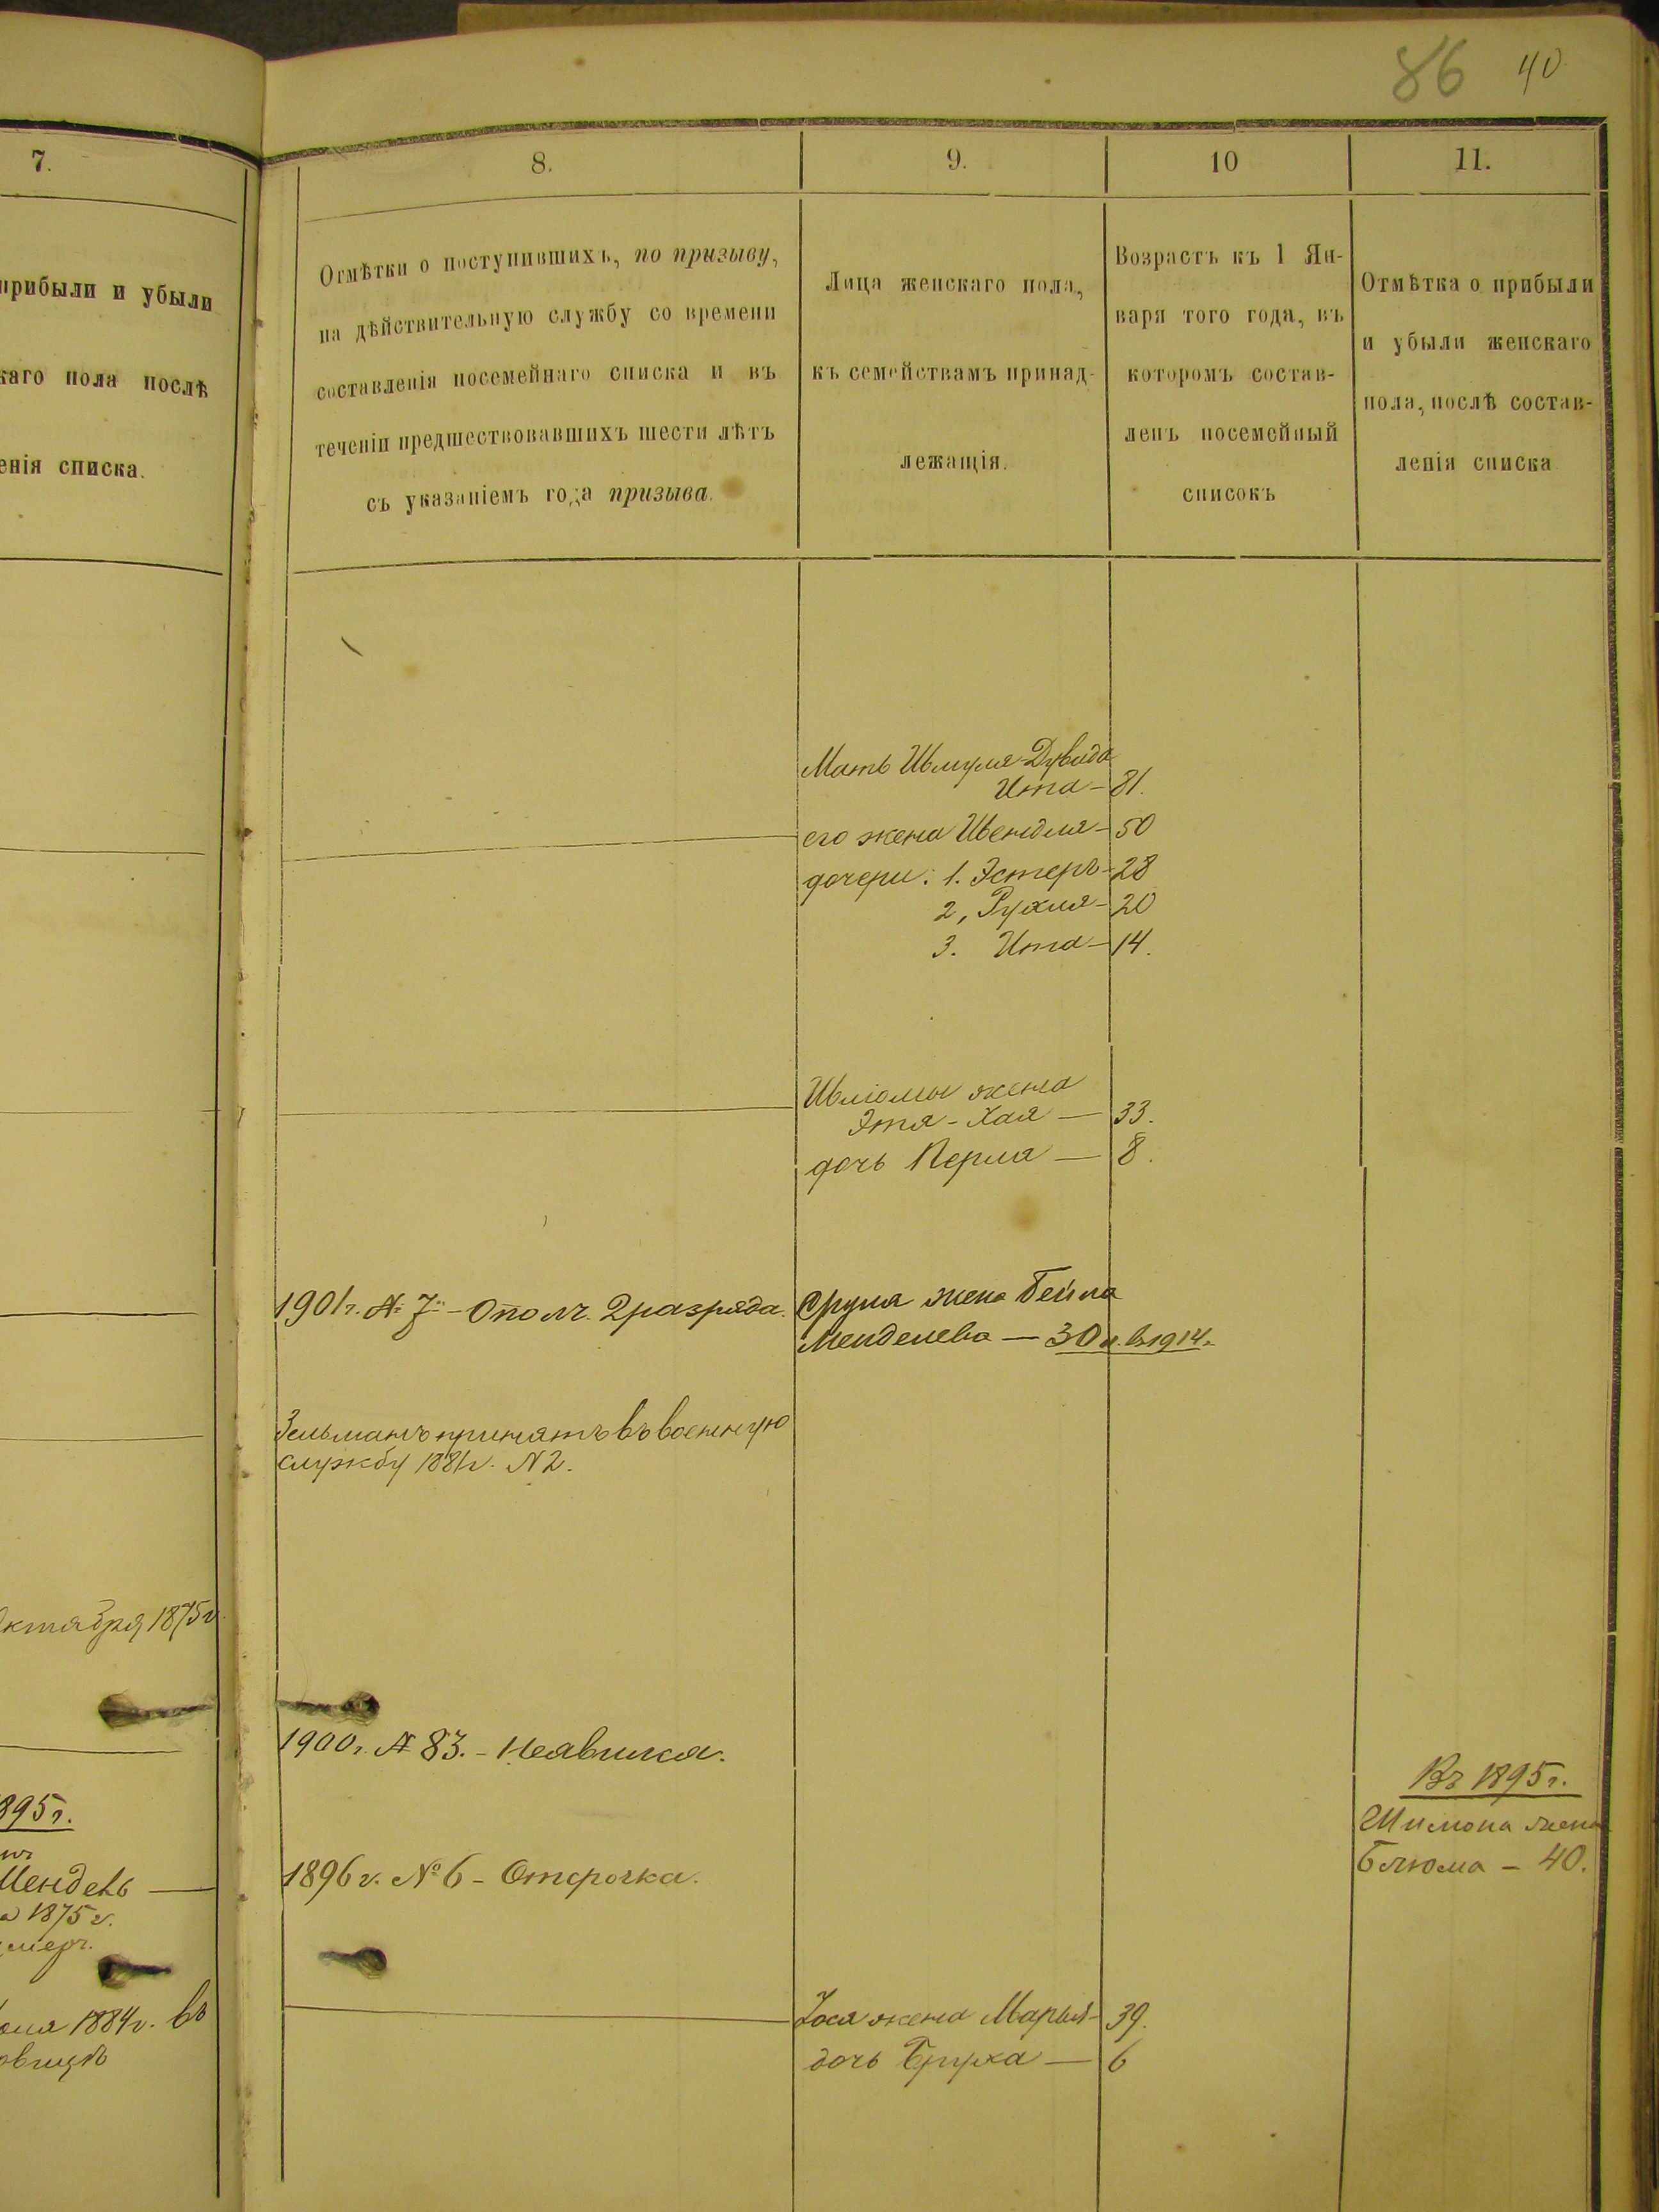 86 40
7.
прибыли и убыли
каго пола послѣ
енія списка.
Октября 1875 г.
895 г.
Мендель —
а 1875 г.
умеръ.
1884 г. въ
8.
Отмѣтки о поступившихъ, по призыву,
на дѣйствительную службу со времени
составленія посемейнаго списка и въ
теченіи предшествовавшихъ шести лѣтъ
съ указаніемъ года призыва.
9.
Лица женскаго пола,
къ семействамъ принад-
лежащія.
10
Возрастъ къ 1 Ян-
варя того года, въ
которомъ состав-
ленъ посемейный
списокъ
11.
Отмѣтка о прибыли
и убыли женскаго
пола, послѣ состав-
ленія списка
Мать Шмуля-Дувида
Ита - 81.
его жена Шейндля - 50
дочери: 1. Эстеръ - 28
2, Рухля - 20
3. Ита - 14.
Шліомы жена
Этя - Хая — 33.
дочь Перля — 8.
1901 г. № 7 - Ополч. 2 разряда. Сруля жена Бейла
Менделева — 30 л. въ 1914 г.
Зельманъ принятъ въ военную
службу 1881 г. N 2.
1900 г. № 83. - Неявился.
Въ 1895 г.
Шимона жена
Блюма - 40.
1896 г. № 6 - Отсрочка.
жена Марья - 39.
дочь Бруха — 6